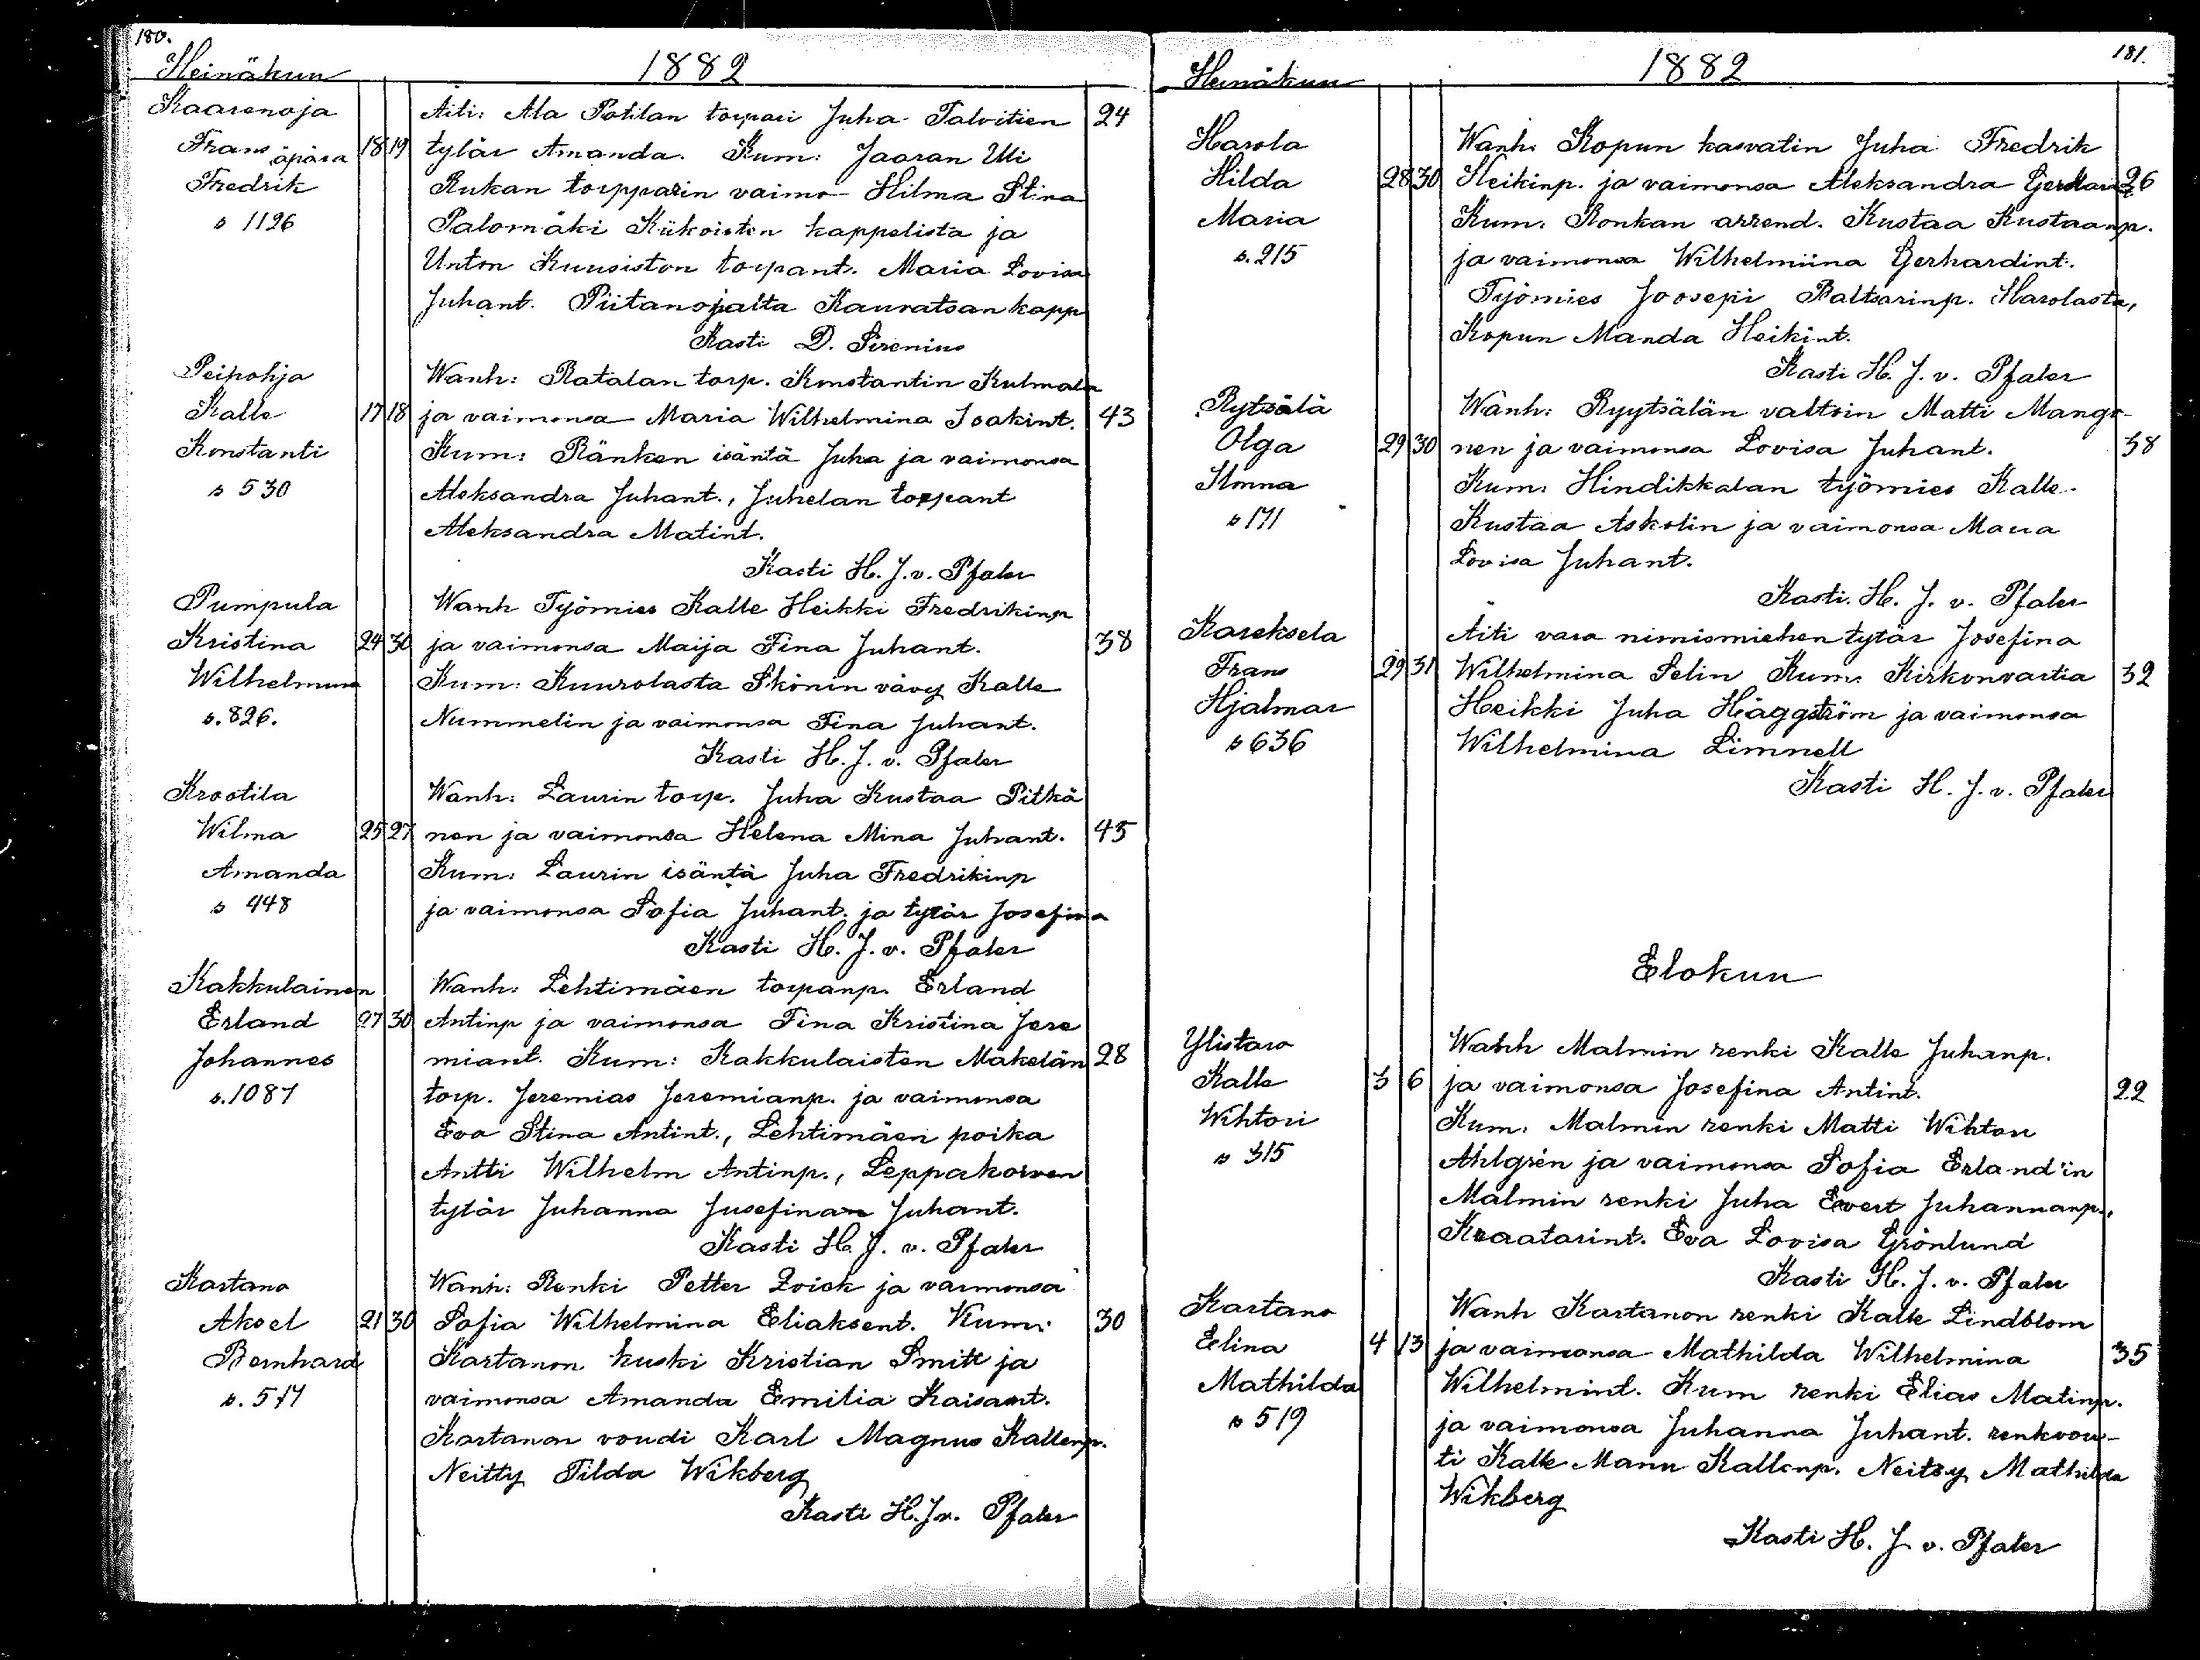 180.
Heinäkun 1882
Kaarenoja Äiti: Ala Potilan torpari Juha Talvitien 24
Frans äpärä 18 19 tytär Amanda. Kum: Jaaran Uli
Fredrik Rukan torpparin vaimo Hilma Stina
s 1126 Palomäki Kiikoisten kappelista ja
Unton Kuusiston torpant. Maria Lovisa
Juhant. Piitanojalta Kauvatsan kapp
Kasti D. Sirenius
Peipohja Wanh: Ratalan torp. Konstantin Kulmala
Kalle 17 18 ja vaimonsa Maria Wilhelmina Isakint. 43
Konstanti Kum: Ränken isäntä Juha ja vaimonsa
s 530 Aleksandra Juhant., Juhelan torpant
Aleksandra Matint.
Kasti H. J. v. Pfaler
Pumpula Wanh Työmies Kalle Heikki Fredrikinp
Kristina 24 30 ja vaimonsa Maija Fina Juhant. 38
Wilhelmina Kum: Kuurolasta Skönin vävy Kalle
s. 826. Nummelin ja vaimonsa Fina Juhant.
Kasti H. J. v. Pfaler
Krootila Wanh: Laurin torp. Juha Kustaa Pitkä
Wilma 25 27 nen ja vaimonsa Helena Mina Juhant. 45
Amanda Kum: Laurin isäntä Juha Fredrikinp
s 448 ja vaimonsa Sofia Juhant. ja tytär Josefina
Kasti H. J. v. Pfaler
Kakkulainen Wanh: Lehtimäen torpanp. Erland
Erland 27 30 Antinp ja vaimonsa Fina Kristina Jere
Johannes miant. Kum: Kakkulaisten Makelän 28
s. 1087 torp. Jeremias Jeremianp. ja vaimonsa
Eva Stina Antint., Lehtimäen poika
Antti Wilhelm Antinp., Leppakorven
tytär Juhanna Jusefina Juhant.
Kasti H. J. v. Pfaler
Kartano Wanh: Renki Petter Zoick ja vaimonsa
Aksel 21 30 Sofia Wilhelmina Eliaksent. Kum: 30
Bernhard Kartanon kuski Kristian Smitt ja
s. 517 vaimonsa Amanda Emilia Kaisant.
Kartanon voudi Karl Magnus Kallenp.
Neitty Tilda Wikberg
Kasti H. J. v. Pfaler
181.
Heinäkun 1882
Harola Wanh: Kopun kasvatin Juha Fredrik
Hilda 28 30 Heikinp. ja vaimonsa Aleksandra 26
Maria Kum. Ronkan arrend. Kustaa Kustaanp.
s. 215 ja vaimonsa Wilhelmiina Gerhardint.
Työmies Joosepi Baltsarinp. Harolasta,
Kopun Manda Heikint.
Kasti H. J. v. Pfaler
Rytsälä Wanh: Ryytsälän valtsin Matti Mango-
Olga 29 30 nen ja vaimonsa Lovisa Juhant. 38
Ilmna Kum: Hindikkalan työmies Kalle
s 171 Kustaa Askolin ja vaimonsa Maria
Lovisa Juhant.
Kasti. H. J. v. Pfaler
Kareksela Äiti vara nimismiehen tytär Josefina
Frans 29 31 Wilhelmina Selin Kum: Kirkonvartia 32
Hjalmar Heikki Juha Häggström ja vaimonsa
s 636 Wilhelmina Limnell
Kasti H. J. v. Pfaler
Elokun
Ylistaro Wanh Malmin renki Kalle Juhanp.
Kalle 3 6 ja vaimonsa Josefina Antint. 22
Wihtori Kum. Malmin renki Matti Wihtori
s 315 Ahlgrén ja vaimonsa Sofia Erland'in
Malmin renki Juha Evert Juhannanp.,
Kraatarint. Eva Lovisa Grönlund
Kasti H. J. v. Pfaler
Kartano Wanh Kartanon renki Kalle Lindblom
Elina 4 13 ja vaimonsa Mathilda Wilhelmina 35
Mathilda Wilhelmint. Kum renki Elias Matinp.
s 519 ja vaimonsa Juhanna Juhant. renkvou-
ti Kalle Manu Kallenp. Neitsy Mathilda
Wikberg
Kasti H. J. v. Pfaler